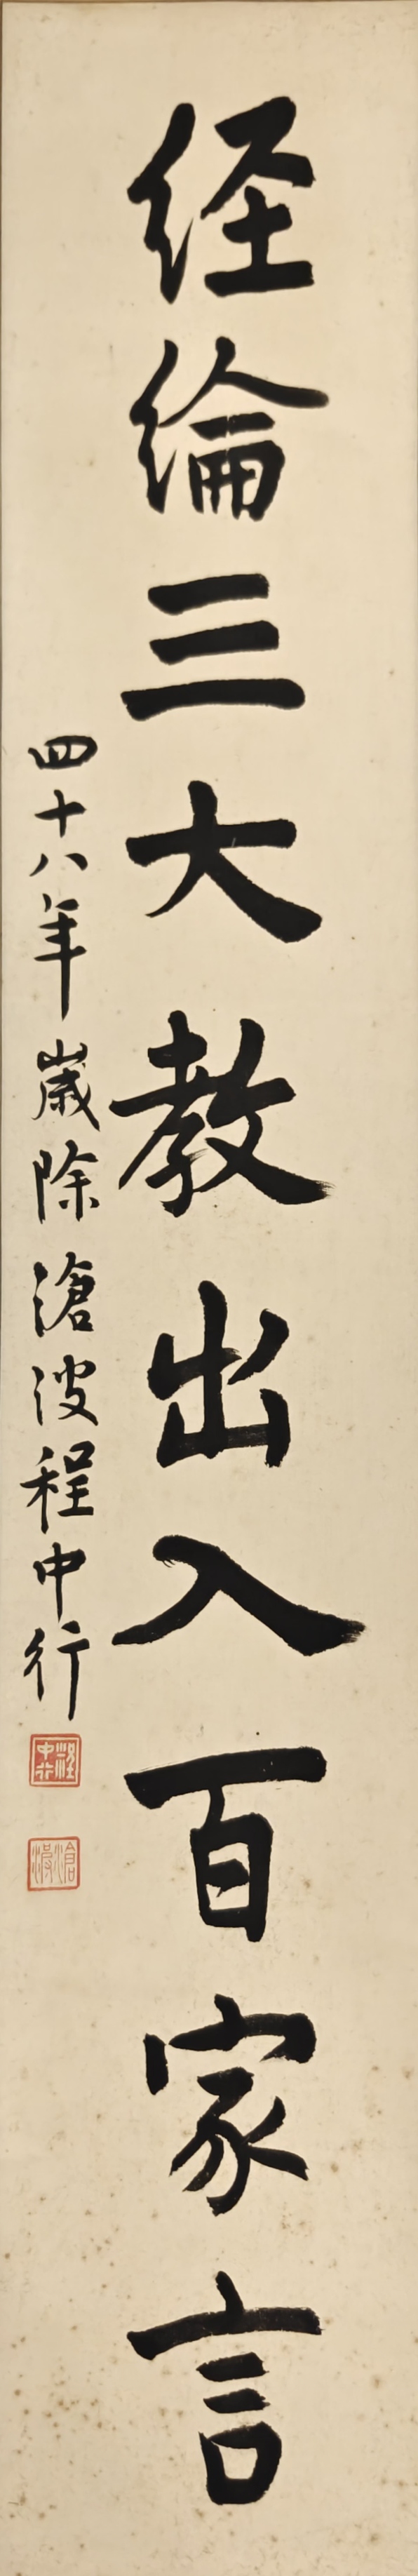 经綸三大教出入百家言
四十八年歲除滄波程中行
程中行
滄波